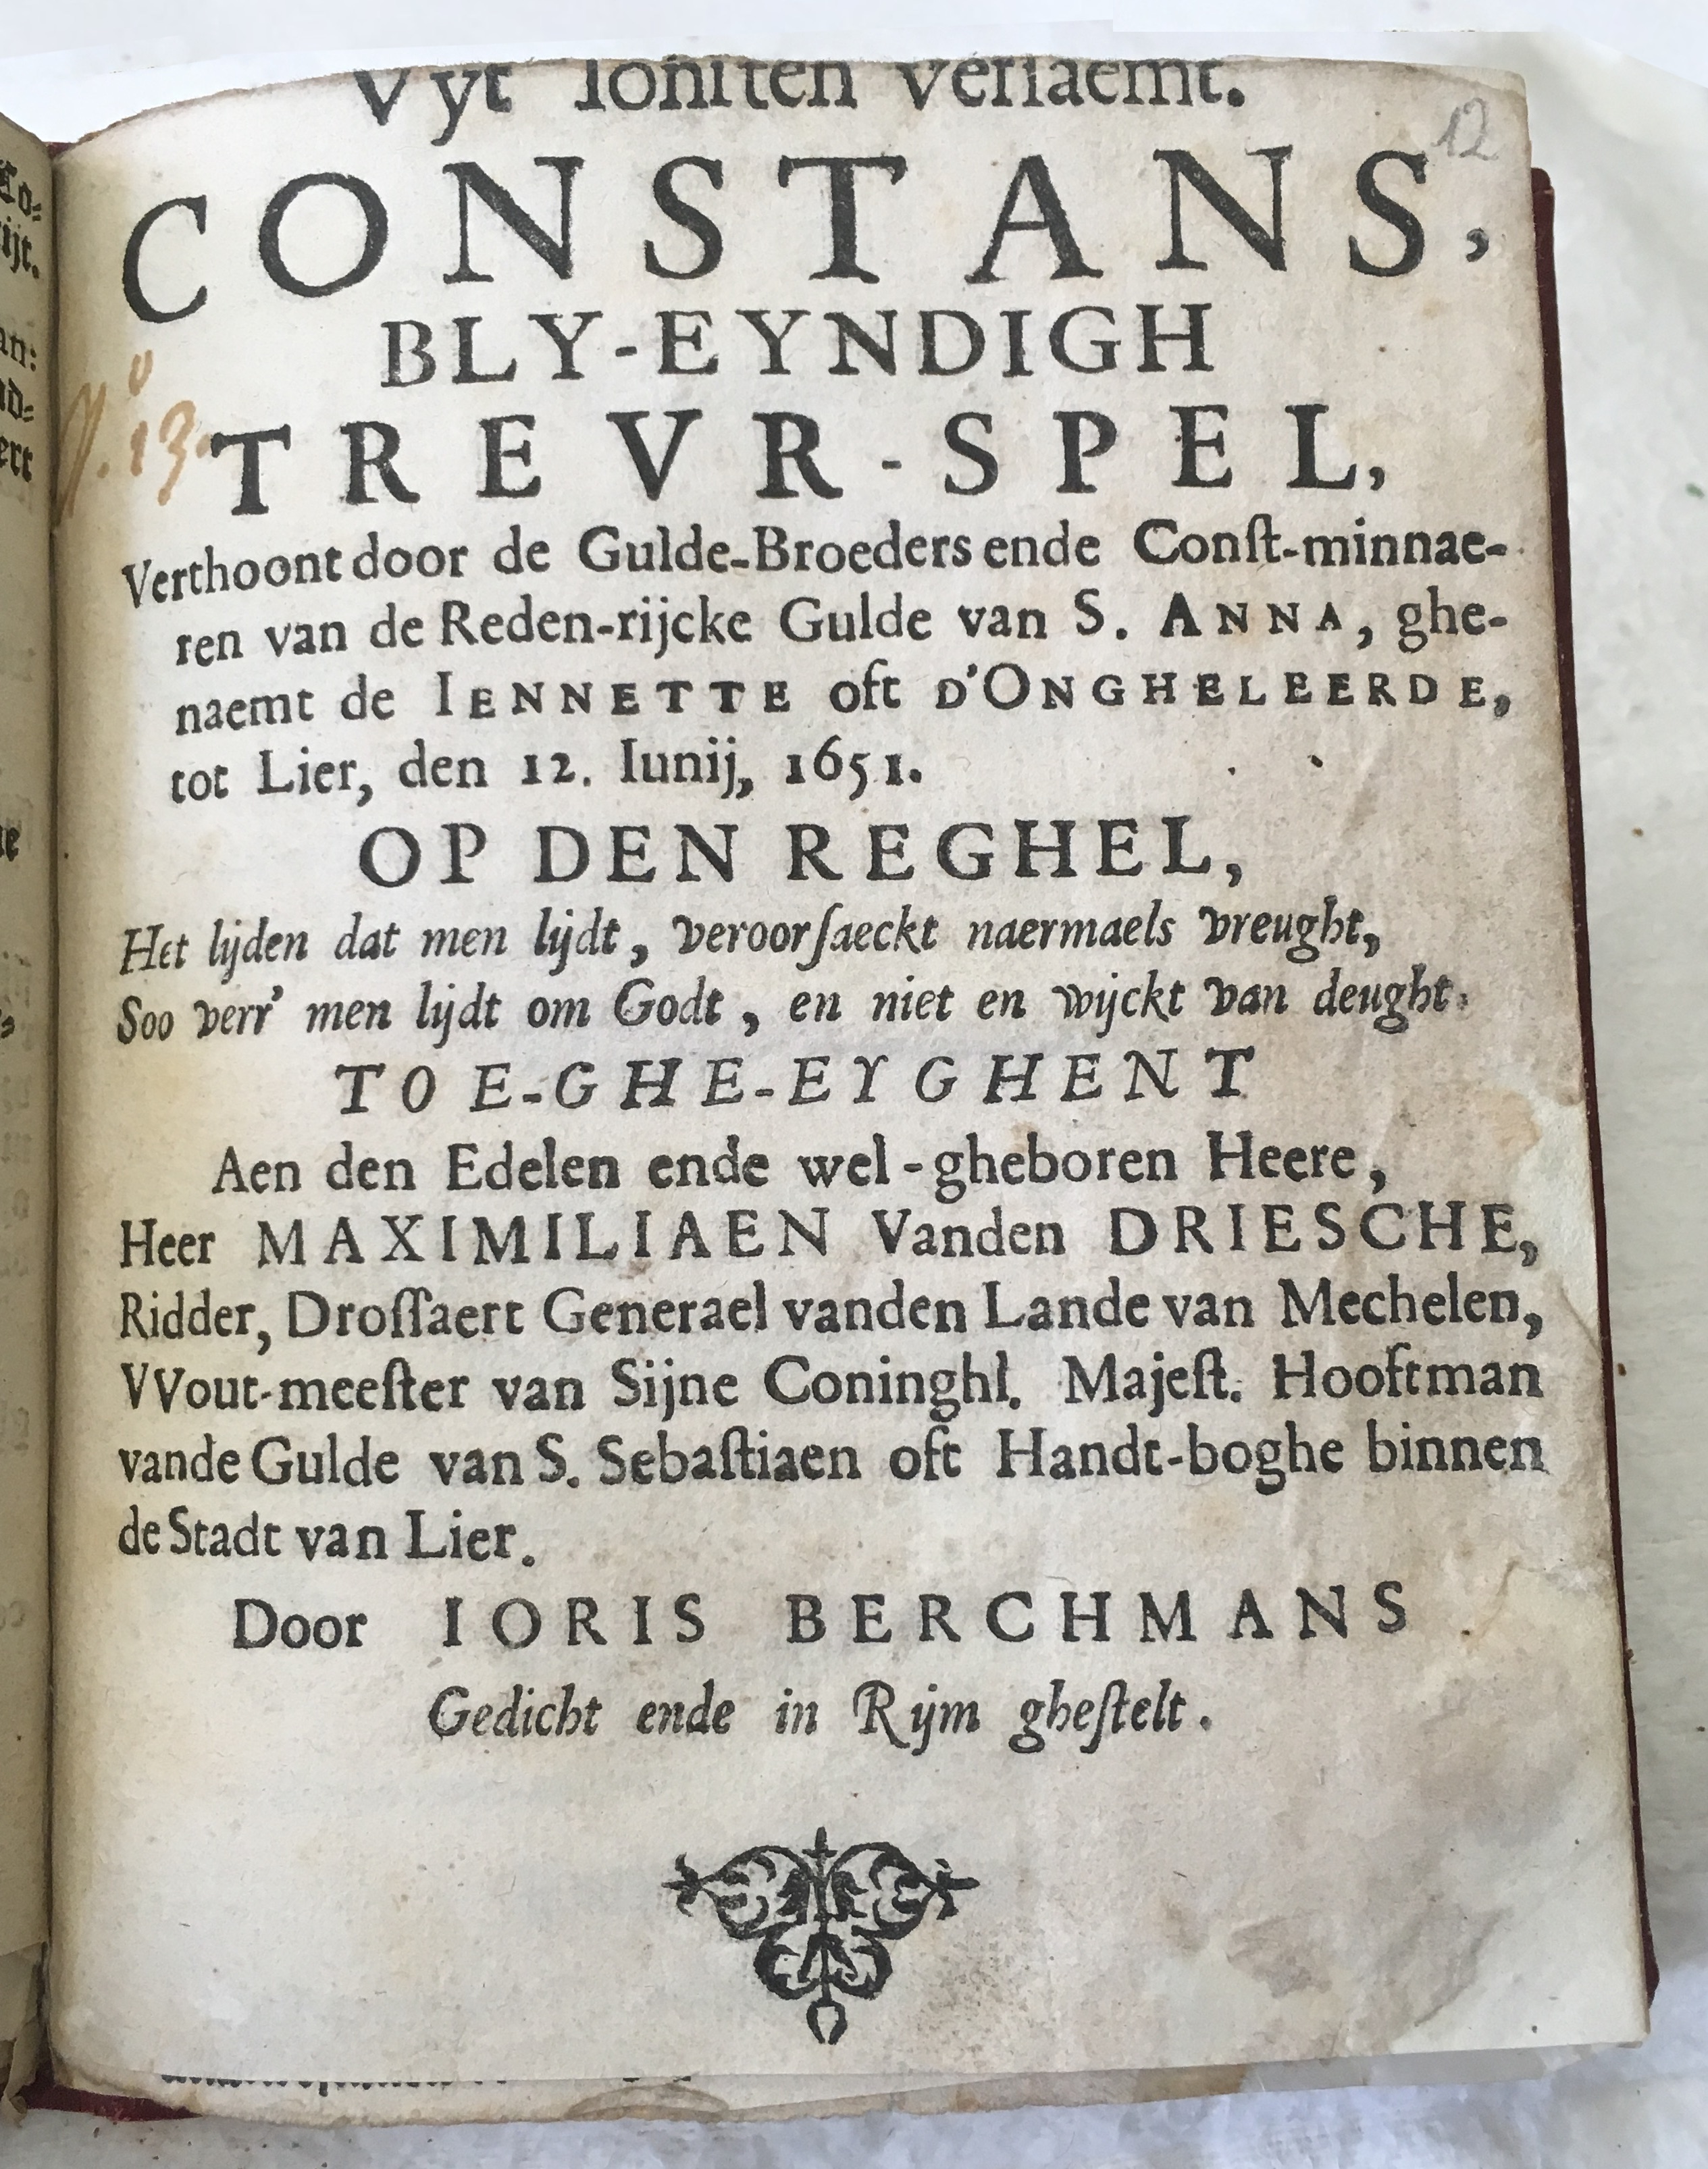 Vyt Ionſten verſaemt.
12
CONSTANS,
BLY-EYNDIGH
TREVR-SPEL,
Verthoont door de Gulde-Broeders ende Conſt-minnae-
ren van de Reden-rijcke Gulde van S. ANNA, ghe-
naemt de IENNETTE oft D'ONGHELEERDE,
tot Lier, den 12. Iunij, 1651.
OP DEN REGHEL,
Het lijden dat men lijdt, veroorſaeckt naermaels vreught,
Soo verr' men lijdt om Godt, en niet en wijckt van deught.
TOE-GHE-EYGHENT
Aen den Edelen ende wel-gheboren Heere,
Heer MAXIMILIAEN Vanden DRIESCHE,
Ridder, Droſſaert Generael vanden Lande van Mechelen,
VVout-meeſter van Sijne Coninghl. Majeſt. Hooftman
vande Gulde van S. Sebaſtiaen oft Handt-boghe binnen
de Stadt van Lier.
Door IORIS BERCHMANS
Gedicht ende in Rijm gheſtelt.